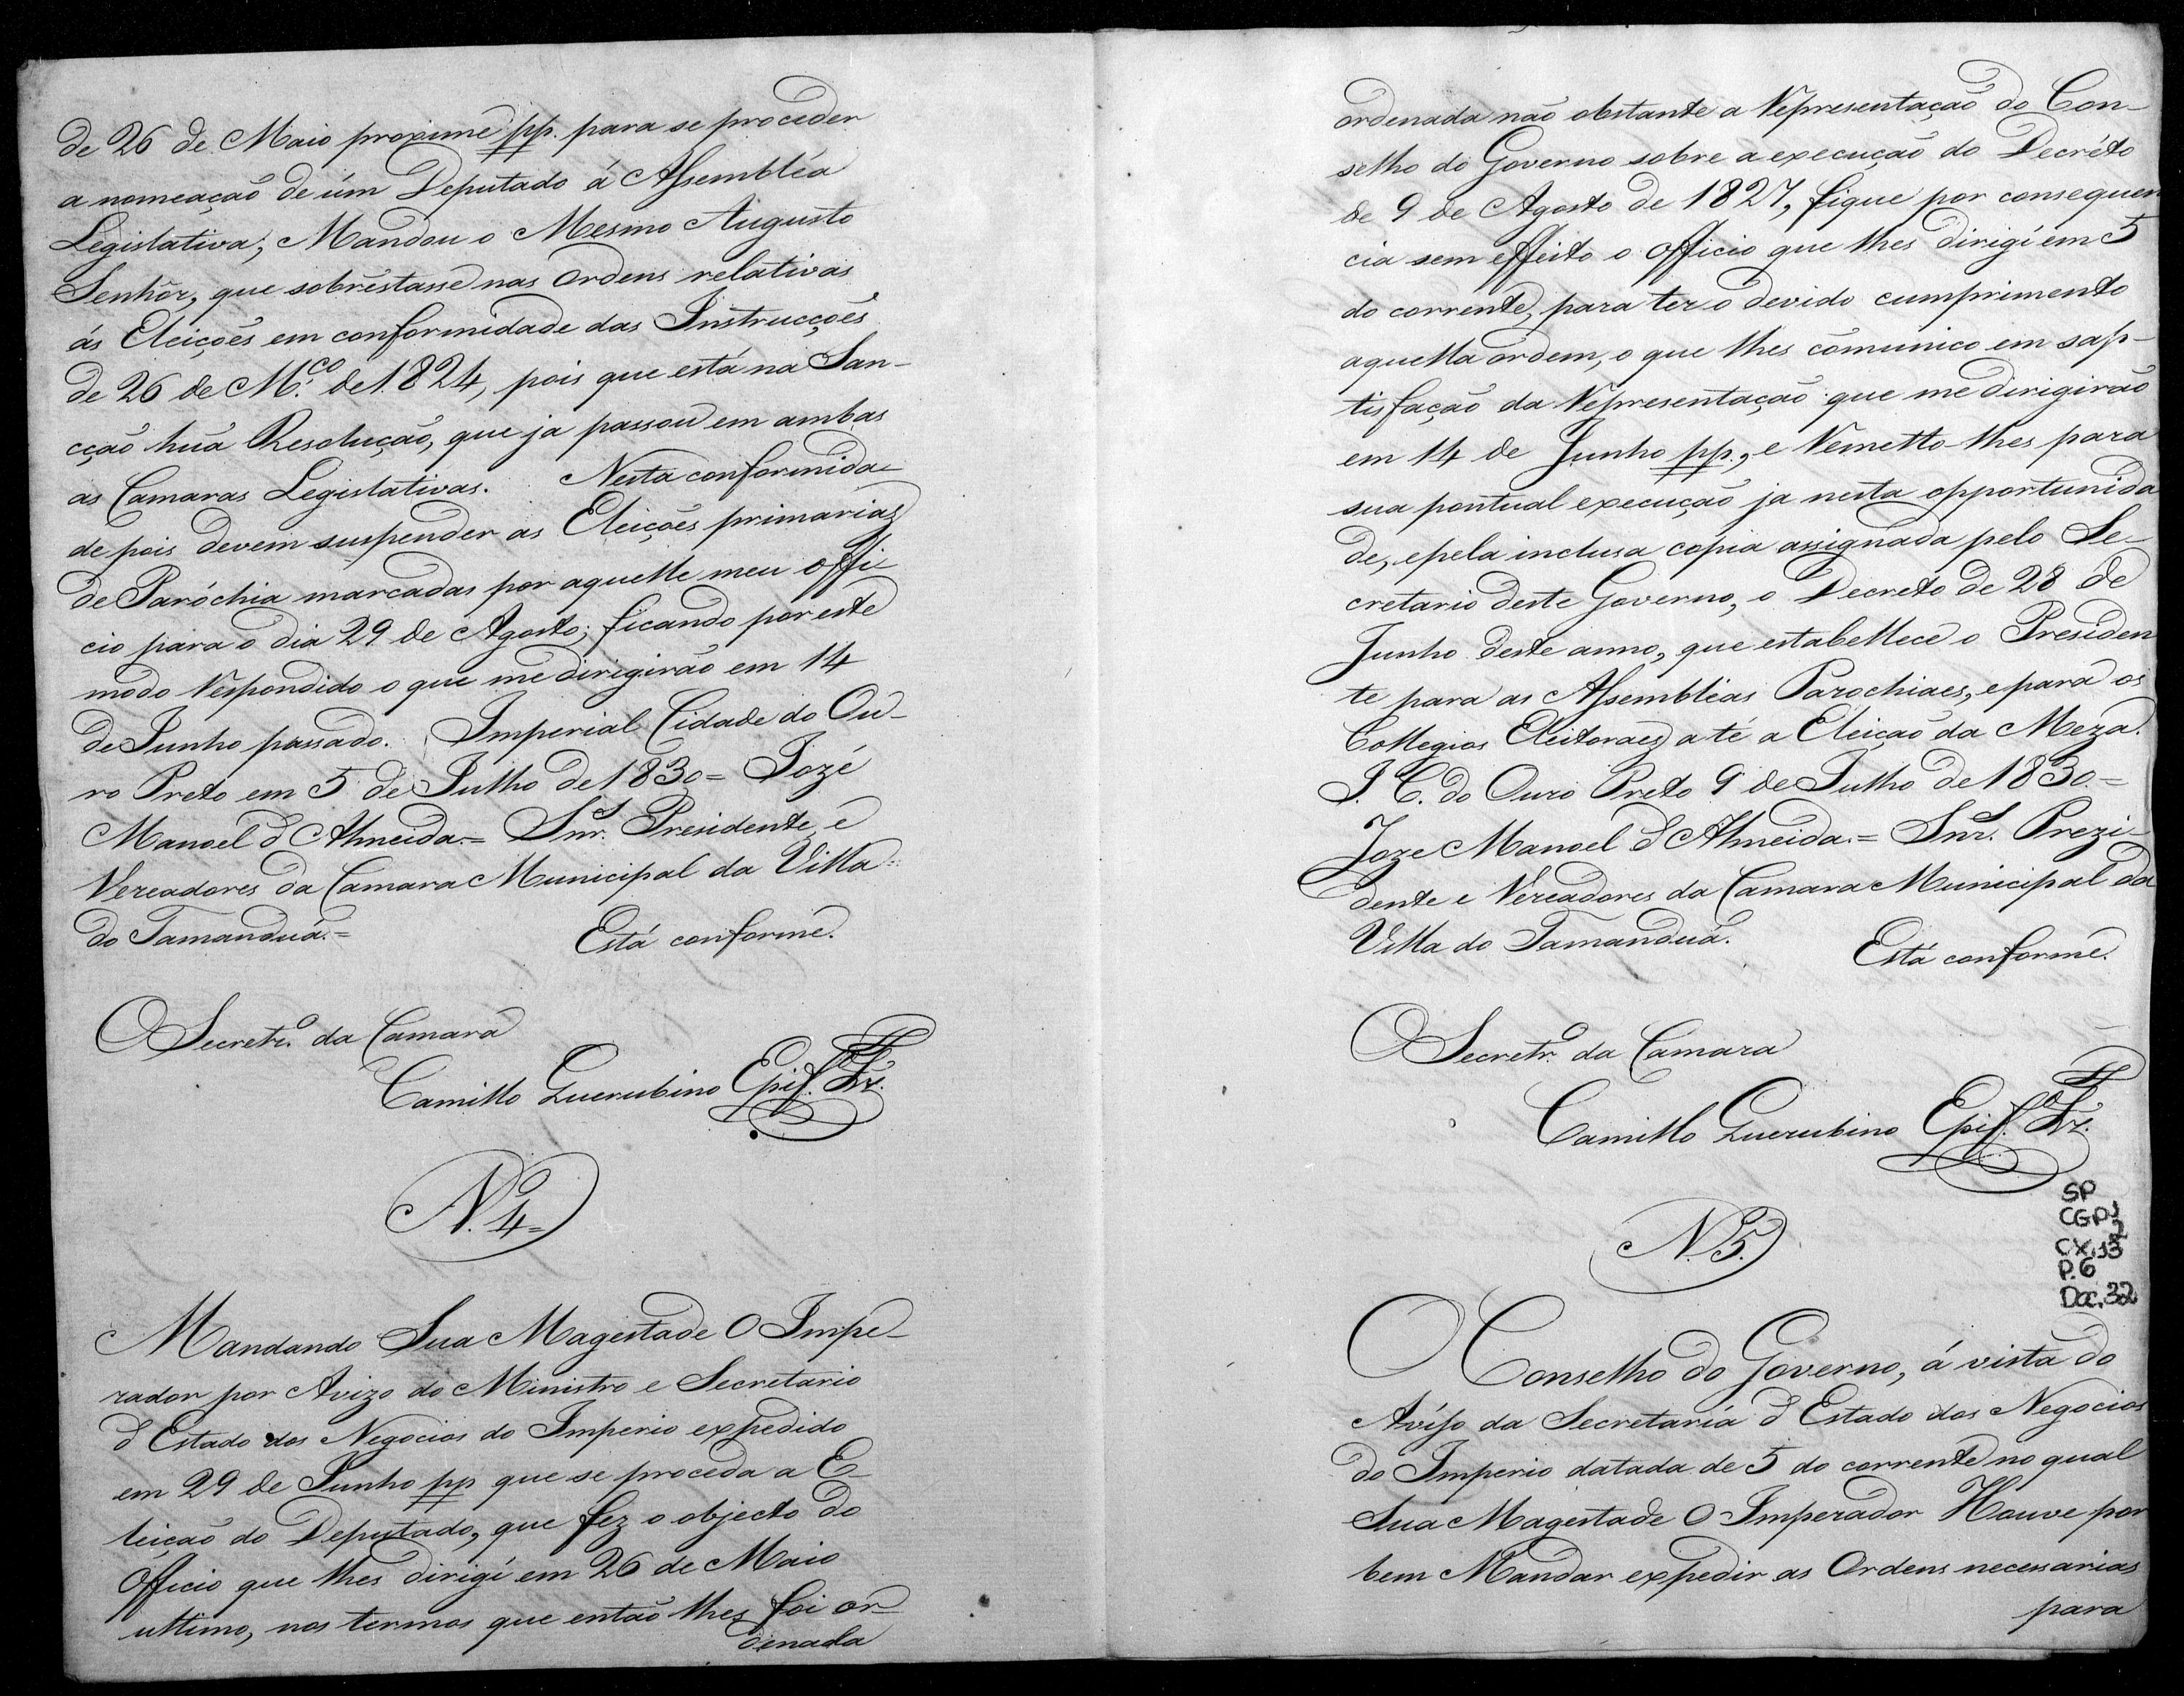 de 26 de Maio proximo pp. para se proceder
a nomeação de úm Deputado á Assembléa
Legislativa; Mandou o Mesmo Augusto
Senhor, que sobrestasse nas ordens relativas
ás Eleições em conformidade das Instrucções
de 26 de M.ço de 1824, pois que está na San-
cção huã Resolução, que ja passou em ambas
as Camaras Legislativas. Nesta conformida-
de pois devem suspender as Eleições primarias
de Paróchia marcadas por aquelle meu offi-
cio para o dia 29 de Agosto; ficando por este
modo Respondido o que me dirigirão em 14
de Junho passado. Imperial Cidade do Ou-
ro Preto em 5 de Julho de 1830 = Jozé
Manoel d'Almeida. = Snr. Presidente, e
Vereadores da Camara Municipal da Villa
do Tamanduá. = Está conforme.
O Secretr.o da Camara
Camillo Querubino Epif.
N.o 4 =
Mandando Sua Magestade O Impe-
rador por Avizo do Ministro e Secretario
d'Estado dos Negocios do Imperio expedido
em 29 de Junho pp que se proceda a E-
leição do Deputado, que fez o objecto do
Officio que lhes dirigí em 26 de Maio
ultimo, nos termos que então lhes foi or-
denada
ordenada não obstante a Representação do Con-
selho do Governo sobre a execução do Decréto
de 9 de Agosto de 1827, fique por consequen
cia sem effeito o officio que lhes dirigí em 5
do corrente, para ter o devido cumprimento
aquella ordem, o que lhes cõmunico em sap-
tisfação da Representação que me dirigirão
em 14 de Junho pp., e Remetto-lhes para
sua pontual execução ja nesta opportunida
de, e pela inclusa copia assignada pelo Se-
cretario deste Governo, o Decreto de 28 de
Junho deste anno, que estabellece o Presiden
te para as Assembléas Parochiaes, e para os
Collegios Eleitoraes até a Eleição da Meza.
I. C. do Ouro Preto 9 de Julho de 1830. =
Joze Manoel d'Almeida. = Snr. Prezi-
dente e Vereadores da Camara Municipal da
Villa do Tamanduá. Está conforme.
O Secretr.o da Camara
Camillo Querubino Epif.
N.o 5.
SP
CGP1
CX.13
2
P.6
Doc.32
O Conselho do Governo, á vista do
Aviso da Secretaría d'Estado dos Negocios
do Imperio datada de 5 do corrente no qual
Sua Magestade O Imperador Houve por
bem Mandar expedir as Ordens necessarias
para